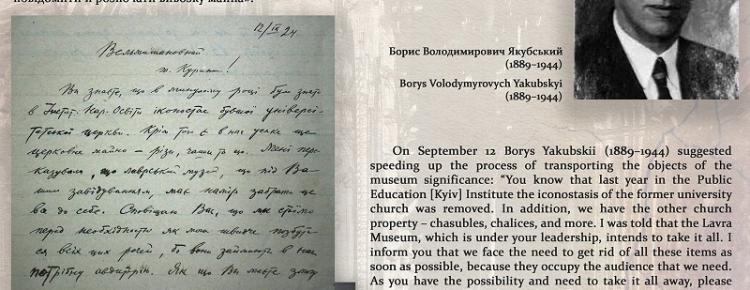 повідомити и розпочати вивозку майна».
12/IX 24
Вельмишановний
т. Курінн !
Ви знаєте, що в минулому році був знят
в Інстит. Нар. Освіти іконостас бувшої універси-
тетської церкви. Крім того є в нас усяке ще
церковне майно – різи, чаши та що. Мені пере-
казували, що лаврський музей, що під Ва-
шим завідуванням, має намір забрати це
все до себе. Сповіщаю Вас, що ми стоїмо
перед необхідністю як мож швидче позбути-
ся всіх цих річей, бо вони займають в нас
потрібну авдиторію. Як що Ви маєте змогу
Борис Володимирович Якубський
(1889–1944)
Borys Volodymyrovych Yakubskyi
(1889–1944)
On September 12 Borys Yakubskii (1889–1944) suggested
speeding up the process of transporting the objects of the
museum significance: “You know that last year in the Public
Education [Kyiv] Institute the iconostasis of the former university
church was removed. In addition, we have the other church
property – chasubles, chalices, and more. I was told that the Lavra
Museum, which is under your leadership, intends to take it all. I
inform you that we face the need to get rid of all these items as
soon as possible, because they occupy the audience that we need.
As you have the possibility and need to take it all away, please